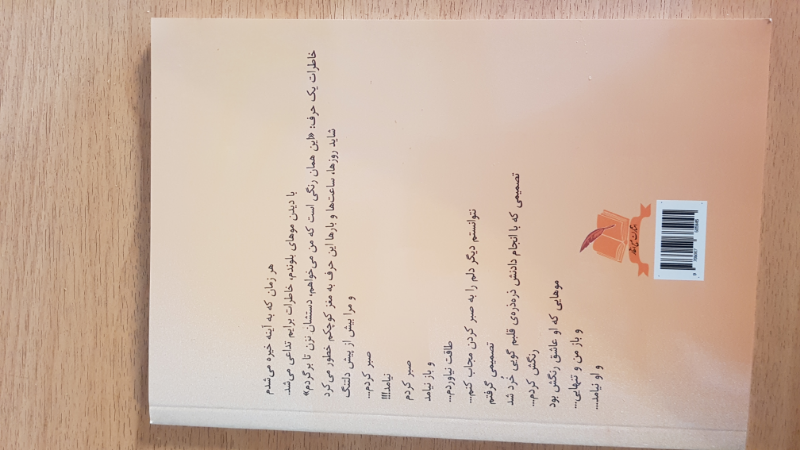 هر زمان که به آینه خیره می‌شدم
با دیدن موهای بلوندم، خاطرات برایم تداعی می‌شد.
خاطرات یک حرف: «این همان رنگی است که من می‌خواهم، دستشان نزن تا برگردم»
شاید روزها، ساعت‌ها و بارها این حرف به مغز کوچکم خطور می‌کرد
و مرا بیش از پیش دلتنگ
صبر کردم...
نیامد!!!
صبر کردم
و باز نیامد
طاقت نیاوردم...
نتوانستم دیگر دلم را به صبر کردن مجاب کنم...
تصمیمی گرفتم
تصمیمی که با انجام دادنش ذره‌ذره‌ی قلبم گویی خُرد شد
رنگش کردم...
موهایی که او عاشق رنگش بود
و باز من و تنهایی...
و او نیامد...